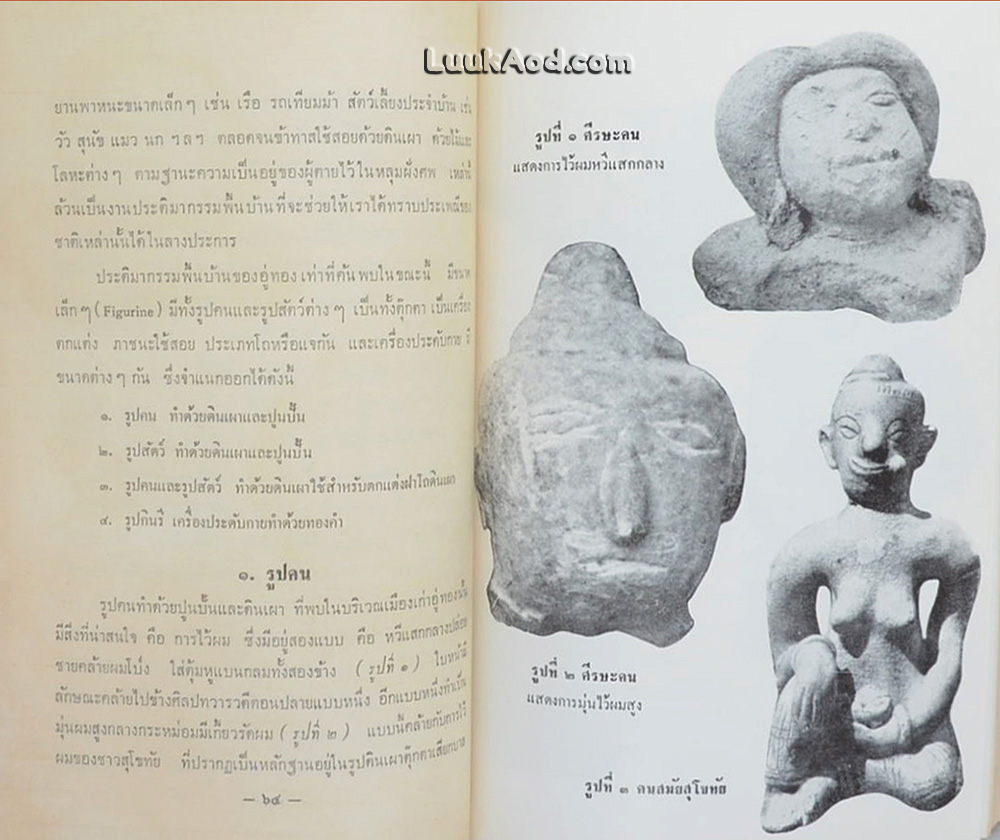 LuukAod.com
ยานพาหนะขนาดเล็กๆ เช่น เรือ รถเทียมม้า สัตว์เลี้ยงประจำบ้าน เช่น
วัว สุนัข แมว นก ฯลฯ ตลอดจนข้าทาสใช้สอยด้วยดินเผา ด้วยไม้และ
โลหะต่างๆ ตามฐานะความเป็นอยู่ของผู้ตายไว้ในหลุมฝังศพ เหล่านี้
ล้วนเป็นงานประติมากรรมพื้นบ้านที่จะช่วยให้เราได้ทราบประเพณีของ
ชาติเหล่านั้นได้ในลางประการ
ประติมากรรมพื้นบ้านของอู่ทอง เท่าที่ค้นพบในขณะนี้ มีขนาด
เล็กๆ (Figurine) มีทั้งรูปคนและรูปสัตว์ต่างๆ เป็นทั้งตุ๊กตา เป็นเครื่อง
ตกแต่ง ภาชนะใช้สอย ประเภทโถหรือแจกัน และเครื่องประดับกาย มี
ขนาดต่างๆ กัน ซึ่งจำแนกออกได้ดังนี้
๑. รูปคน ทำด้วยดินเผาและปูนปั้น
๒. รูปสัตว์ ทำด้วยดินเผาและปูนปั้น
๓. รูปคนและรูปสัตว์ ทำด้วยดินเผาใช้สำหรับตกแต่งฝาโถดินเผา
๔. รูปกินรี เครื่องประดับกายทำด้วยทองคำ
๑. รูปคน
รูปคนทำด้วยปูนปั้นและดินเผา ที่พบในบริเวณเมืองเก่าอู่ทองนั้น
มีสิ่งที่น่าสนใจ คือ การไว้ผม ซึ่งมีอยู่สองแบบ คือ หวีแสกกลางปล่อย
ชายคล้ายผมโป่ง ใส่ตุ้มหูแบนกลมทั้งสองข้าง (รูปที่ ๑) ใบหน้ามี
ลักษณะคล้ายไปข้างศิลปทวารวดีตอนปลายแบบหนึ่ง อีกแบบหนึ่งทำเป็น
มุ่นผมสูงกลางกระหม่อมมีเกี้ยวรัดผม (รูปที่ ๒) แบบนี้คล้ายกับการไว้
ผมของชาวสุโขทัย ที่ปรากฏเป็นหลักฐานอยู่ในรูปดินเผาตุ๊กตาเสียกบาล
— ๖๔ —
รูปที่ ๑ ศีรษะคน
แสดงการไว้ผมหวีแสกกลาง
รูปที่ ๒ ศีรษะคน
แสดงการมุ่นไว้ผมสูง
รูปที่ ๓ คนสมัยสุโขทัย